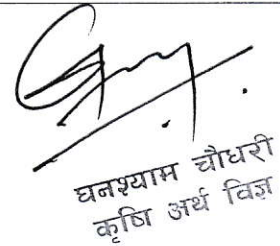 घनश्याम चौधरी
कृषि अर्थ विज्ञ